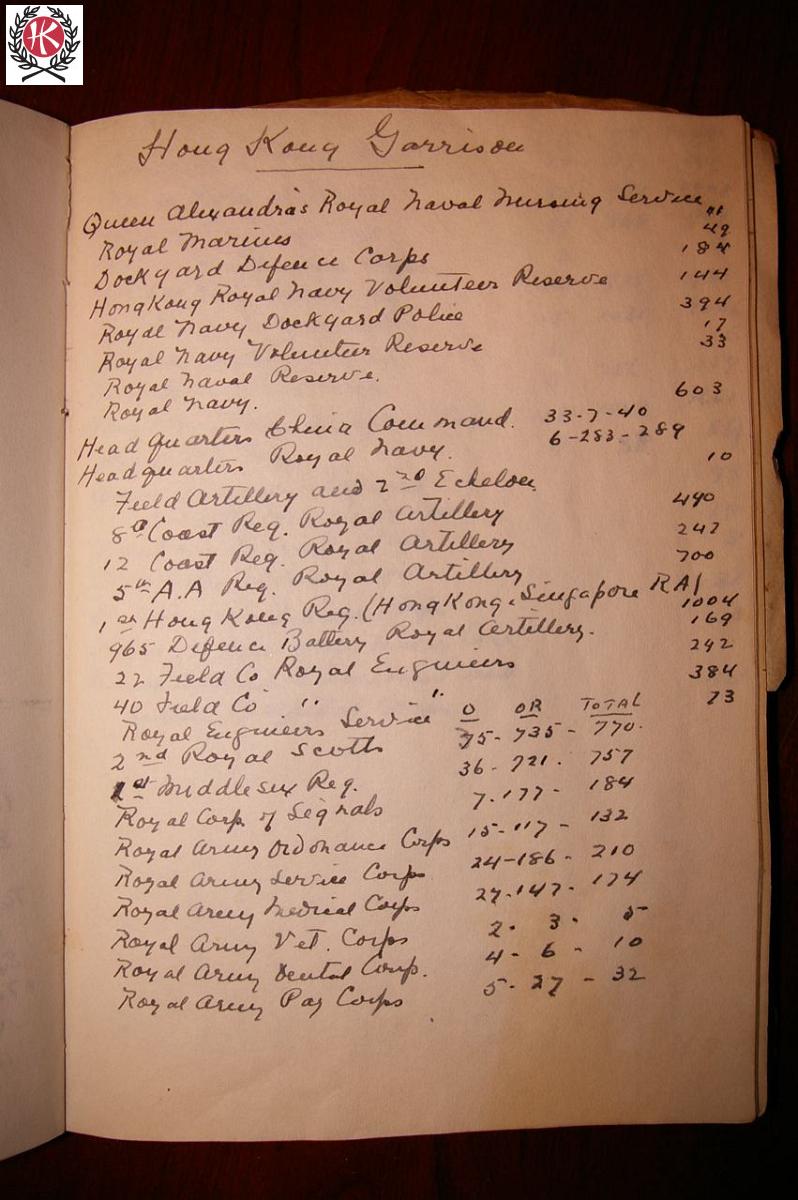 HK
Hong Kong Garrison
Queen Alexandra's Royal Naval Nursing Service "
Royal Marines 49
Dockyard Defence Corps 184
HongKong Royal Navy Volunteer Reserve 144
Royal Navy Dockyard Police 394
Royal Navy Volunteer Reserve 17
Royal Naval Reserve. 33
Royal Navy. 603
Head quarters China Command. 33-7-40
Headquarters Royal Navy. 6-283-289
Field Artillery and 2nd Echelon 10
8th Coast Reg. Royal Artillery 490
12 Coast Reg. Royal Artillery 247
5th A.A Reg. Royal Artillery 700
1st Hong Kong Reg. (HongKong, Singapore RA) 1004
965 Defence Battery Royal Artillery. 169
22 Field Co Royal Engineers 242
40 Field Co " " 384
Royal Engineers Service 73
O OR TOTAL
2nd Royal Scotts 35-735-770.
1st Middlesex Reg. 36-721. 757
Royal Corp. of Signals 7.177- 184
Royal Army Ordonance Corps 15-117- 132
Royal Army Service Corps 24-186- 210
Royal Army Medical Corps 27-147- 174
Royal Army Vet. Corps 2. 3. 5
Royal Army Dental Corp. 4- 6 - 10
Royal Army Pay Corps 5-27 - 32